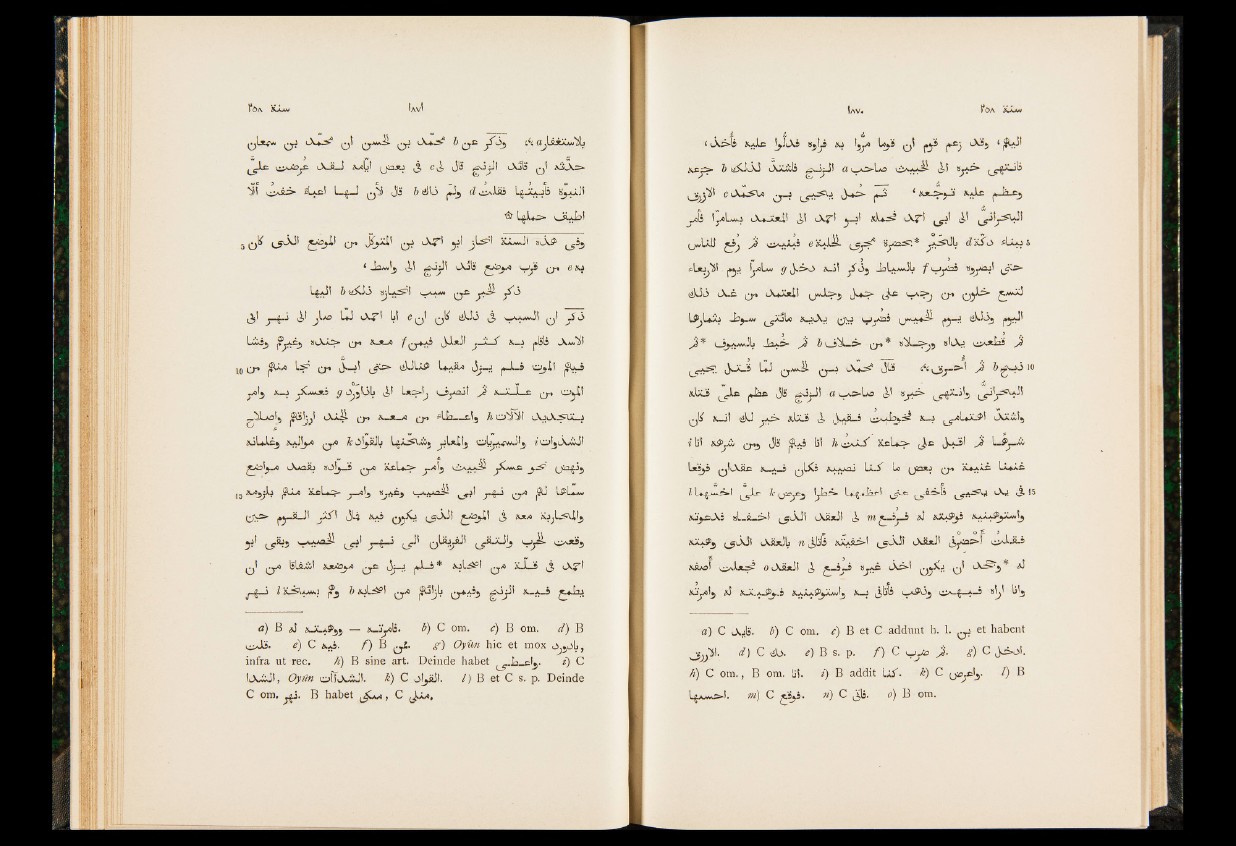 سنة ٢٥٨ ١٨٧٠
اليمّ، وقد زعم قوم ان قومًا مرّوا به فراوه فدلّوا عليه فأخذ،
فانتهى خبره الى الخبيث صاحب a الزنج فاشتدّ لذلك b جزعه
وعظم عليه توجّعه، ثم حُمل يحيى بن محمد c الازرق
البحرانىّ الى ابى احمد فحمله ابو احمد الى المعتمد بسامرّا فأمر
5 ببناء دكّة d بالحَيْر *بحضرة مجرى الحلبة e فبُنيت ثم رُفع للناس
حتى ابصروه فضُرب f بالسياط وذُكر انه دخل g سامرّا يوم الاربعاء
لتسع خلون من رجب على جمل وجلس المعتمد من غد ذلك
اليوم وذلك يوم الخميس فضُرب بين يديه مائتى سوط بثمارها
ثم قُطعت يداه ورجلاه *من خلاف b ثم خُبط بالسيوف *ثم
10 ذبح b ثم أُحرق ۞ قال محمد بن الحسن لمّا قُتل يحيى
البحرانىّ وانتهى خبره الى صاحب a الزنج قال عظم علىّ قتله
واشتدّ اهتمامى به فخوطبتُ فقيل لى قتله خير لك انه كان
شرهًا ثم اقبل على جماعة كنتُ h انا فيهم قال ومن شرهه انّا i
غنمنا غنيمة من بعض ما كنا نصيبه فكان فيه عقدان فوقعا
15 فى يد يحيى فأخفى عنى اعظمهما خطرا وعرض k علىّ اخسّهما l
واستوهبنيه فوهبته له فرُفع m لى العقد الذى اخفاه فدعوته
فقلتُ أَحْضِرْنى العقد الذى اخفيته فأتانى n بالعقد الذى وهبته
له *وجحد ان يكون اخذ غيره فرُفع لى العقد o فجعلت أصفه
انا واراه فبُهت وذهب فأتانى به واستوهبنيه فوهبته له وامرته
a) C قايد. b) C om. c) B et C addunt h. l. بن et habent
الازرق. d) C دك. e) B s. p. f) C ثم ضرب. g) C ادخل.
h) C om., B om. انا. i) B addit كنا. k) C واعرض. l) B
احسبها. m) C فوقع. n) C فأتى. o) B om.
سنة ٢٥٨ ١٨٧١
بالاستغفار a ۞ وذُكر عن b محمد بن الحسن ان محمّد بن سمعان
حدّثه ان قائد الزنج قال لى c فى بعض ايّامه لقد عُرضت علىّ
النبوّة فأبيتُها فقلتُ d ولم ذاك b قال لأن لها اعباء خفتُ ألّا
اطيق حملها ۞
5 وفى هذه السنة انحاز ابو احمد بن المتوكّل من الموضع الذى كان
به e من قرب موضع قائد الزنج الى واسط،
ذكر الخبر عن سبب انحيازه ذلك b اليها
ذُكر ان السبب فى ذلك كان ان e ابا احمد لمّا صار الى نهر ابى
الاسد فأقام به كثر العلل فيمن f معه من جنده وغيرهم وفشا
10 فيهم الموت فلم يزل مقيما هنالك حتى أبلّ من نجا منهم من
الموت من علّته ثم انصرف راجعا الى باذاوَرْد g فعسكر به وامر
بتجديد الآلات h واعطاء من معه من الجند ارزاقهم واصلاح
الشذوات i والسميريّات والمعابر وشحنها بالقوّاد k من مواليه وغلمانه
ونهض نحو عسكر الخبيث وأمر جماعة من قوّاده بقصد مواضع
15 سمّاها لهم من نهر ابى الخصيب وغيره وامر جماعة منهم بلزومه
والمحاربة معه فى الموضع الذى يكون فيه فمال اكثر القوم حين
وقعت الحرب والتقى الفريقان الى نهر ابى الخصيب وبقى ابو
احمد فى قلّة من اصحابه *فلم يزل عن موضعه اشفاقا من ان
يطمع فيه الزنج وفيمن بازائهم من اصحابه b وهم بسبخة l نهر
a) B فأمرته — ووهبته له. b) C om. c) B om. d) B
قلت. e) C فيه. f) B عن. g) Oyûn hic et mox بازورد,
infra ut rec. h) B sine art. Deinde habet واعطى. i) C
الشذا, Oyûn الشذاآت. k) C القواد. l) B et C s. p. Deinde
C om. نهر. B habet منكى, C منلى.